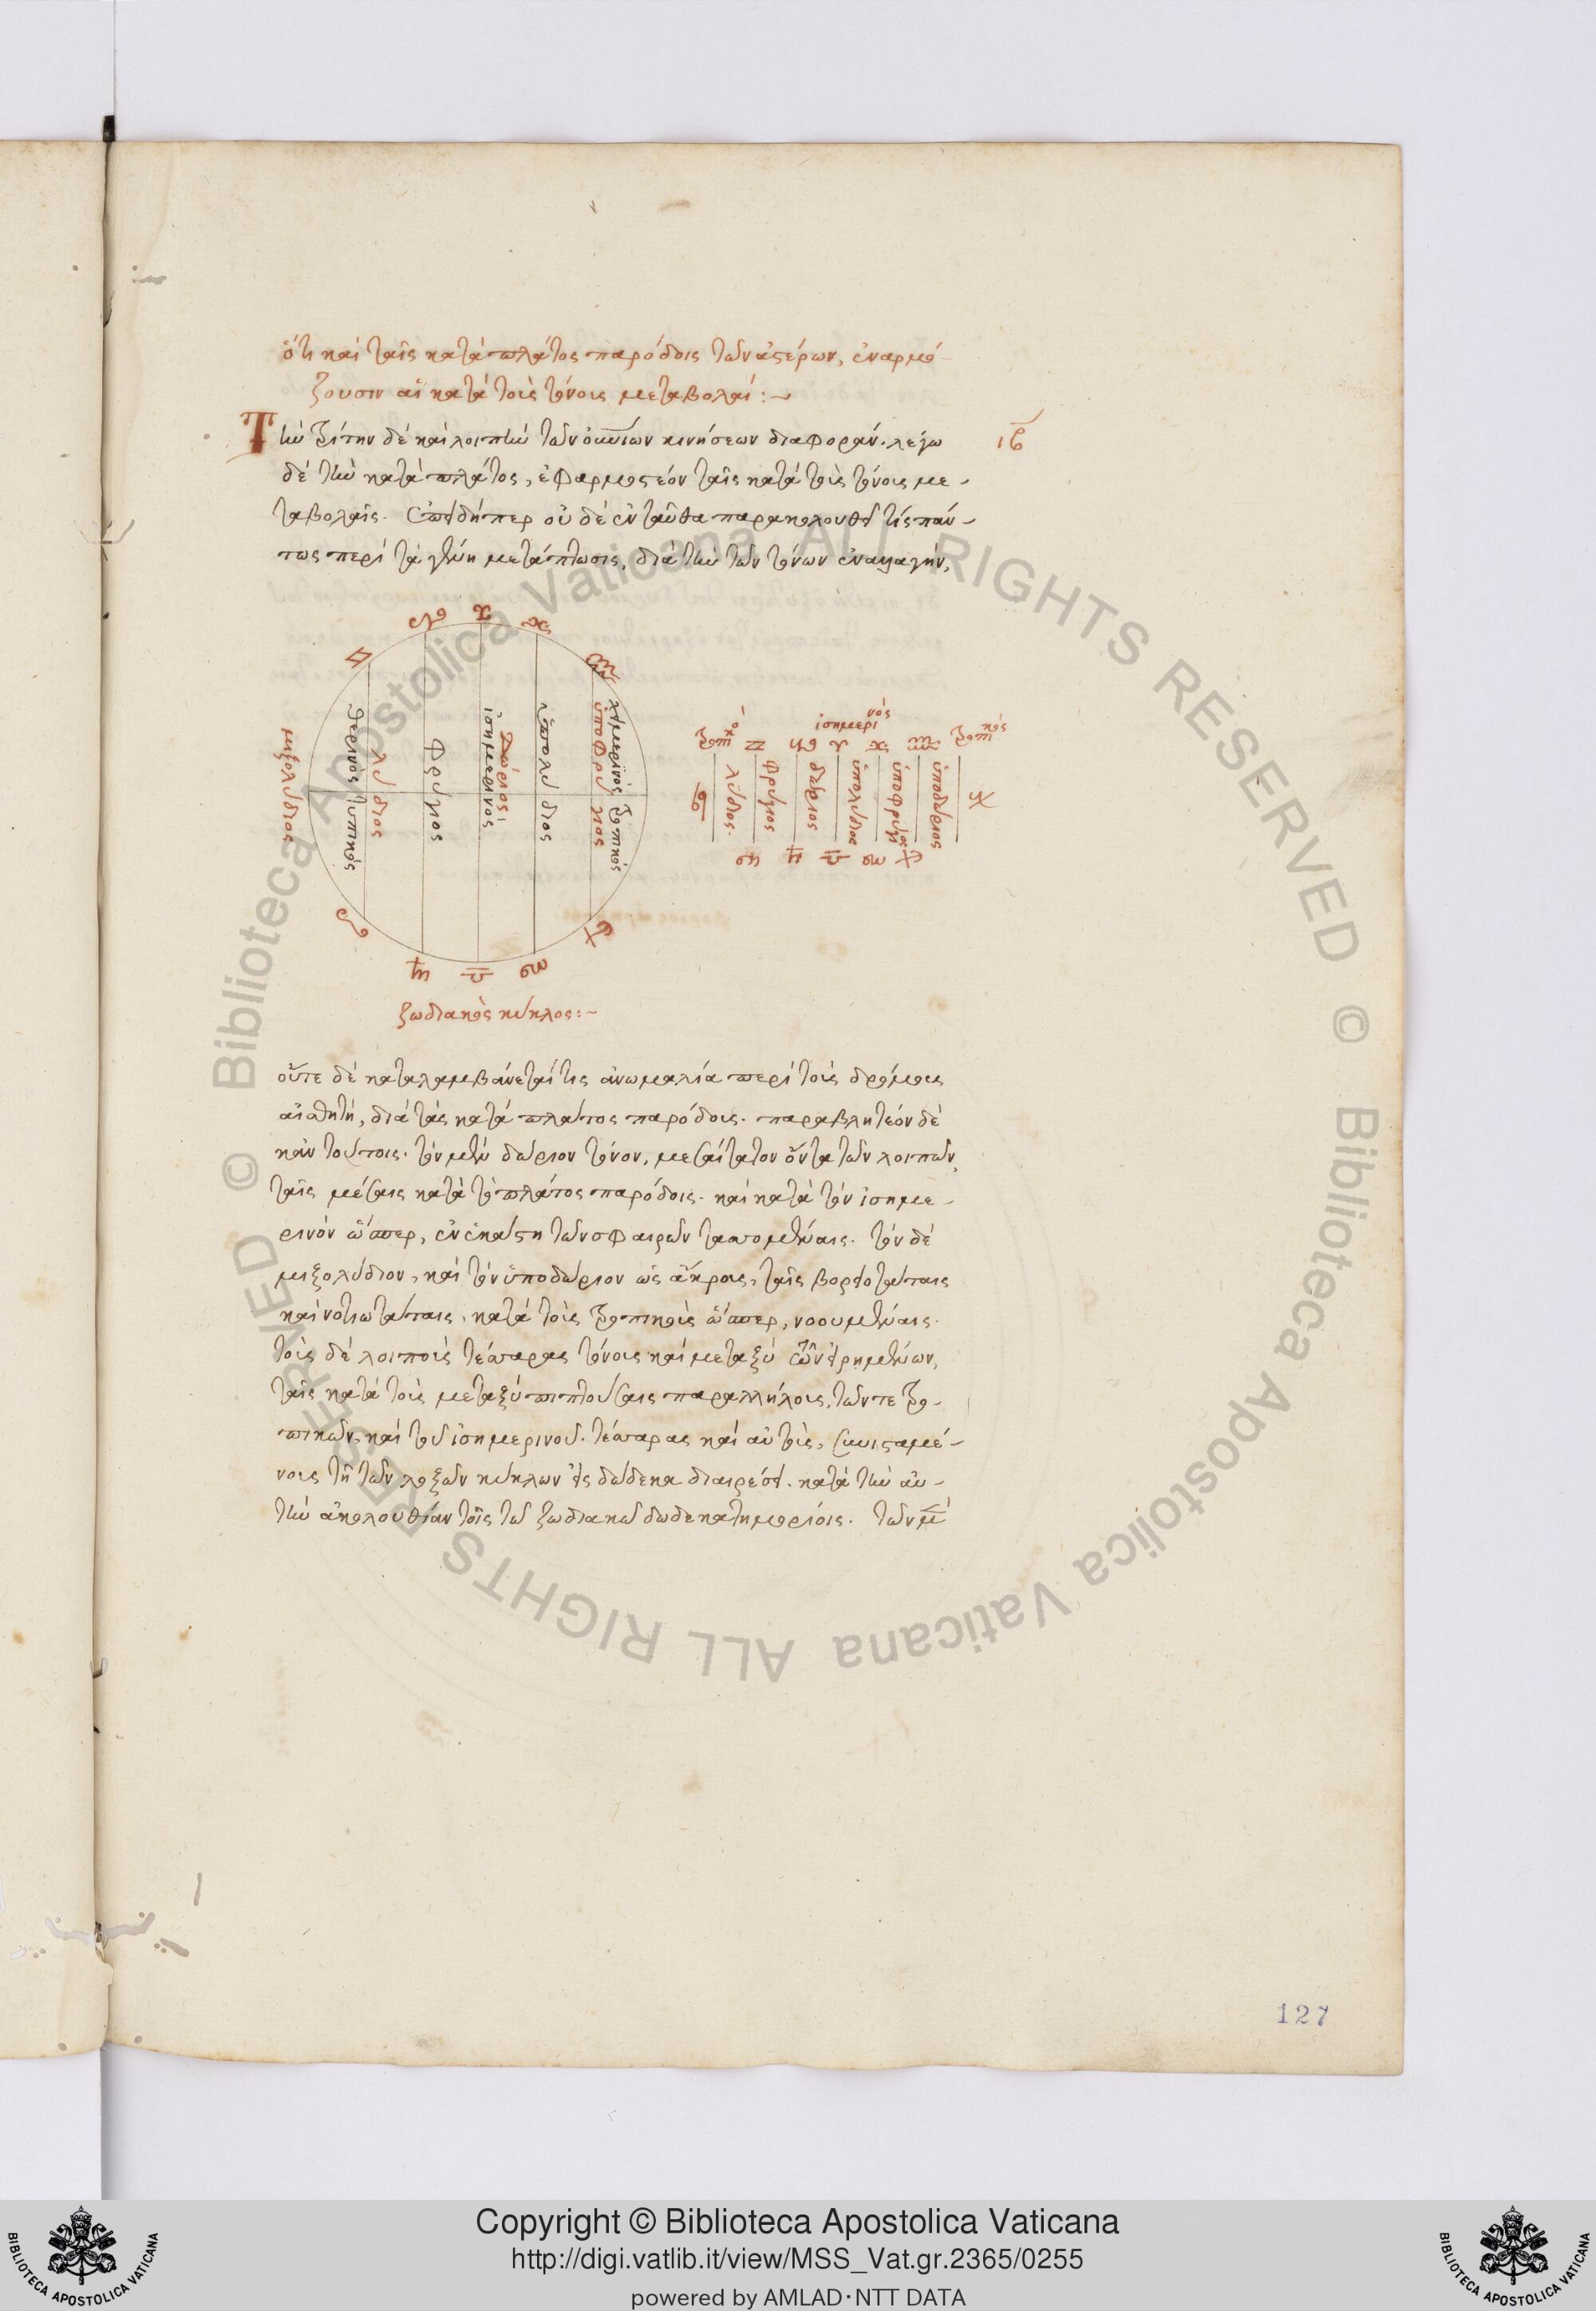 ὅτι καὶ ταῖς κατὰ πλάτος παρόδοις τῶν ἀστέρων, ἐναρμό-
ζουσιν αἱ κατὰ τοὺς τόνους μεταβολαί:~
Τὴν τρίτην δὲ καὶ λοιπὴν τῶν οὐνίων κινήσεων διαφοράν. λέγω
ιβ
δὲ τὴν κατὰ πλάτος, ἐφαρμοστέον ταῖς κατὰ τοὺς τόνους με-
ταβολαῖς. ἐπειδήπερ οὐδὲ ἐνταῦθα παρακολουθεῖ τίς πάν-
τως περὶ τὰ γένη μετάπτωσις, διὰ τὴν τῶν τόνων ἐναλλαγήν,
θερινὸς τροπικός
μιξολύδιος
λύδιος
φρύγιος
ἰσημερινός
δώριος
ὑπολύδιος
ὑποφρύγιος
χειμερινὸς τροπικός
ἰσημερινός
λύδιος
φρύγιος
δώριος
ὑπολύδιος
ὑποφρύγιος
ὑποδώριος
ζωδιακὸς κύκλος:~
οὔτε δὲ καταλαμβάνεταί τις ἀνωμαλία περὶ τοὺς δρόμους
αἰσθητή, διὰ τὰς κατὰ πλάτος παρόδους. παραβλητέον δὲ
κἀν τούτοις. τὸν μὲν δώριον τόνον, μεσαίτατον ὄντα τῶν λοιπῶν,
ταῖς μέσαις κατὰ τὸ πλάτος παρόδοις. καὶ κατὰ τὸν ἰσημε-
ρινὸν ὥσπερ, ἐν ἑκάστῃ τῶν σφαιρῶν ταττομέναις. τὸν δὲ
μιξολύδιον, καὶ τὸν ὑποδώριον ὡς ἄκρους, ταῖς βορειοτάταις
καὶ νοτιωτάταις, κατὰ τοὺς τροπικοὺς ὥσπερ, νοουμέναις.
τοὺς δὲ λοιποὺς τέσσαρας τόνους καὶ μεταξὺ τῶν εἰρημένων,
ταῖς κατὰ τοὺς μεταξὺ πιπτούσαις παραλλήλους, τῶν τε τρο-
πικῶν, καὶ τοῦ ἰσημερινοῦ. τέσσαρας καὶ αὐτοὺς, συνισταμέ-
νους τῇ τῶν λοξῶν κύκλων εἰς δώδεκα διαιρέσει. κατὰ τὴν αὐ-
τὴν ἀκολουθίαν τοῖς τοῦ ζωδιακοῦ δωδεκατημορίοις. τῶν μὲν
127
Copyright © Biblioteca Apostolica Vaticana
http://digi.vatlib.it/view/MSS_Vat.gr.2365/0255
powered by AMLAD·NTT DATA
BIBLIOTECA APOSTOLICA VATICANA
BIBLIOTECA APOSTOLICA VATICANA
© Biblioteca Apostolica Vaticana ALL RIGHTS RESERVED © Biblioteca Apostolica Vaticana ALL RIGHTS RESERVED